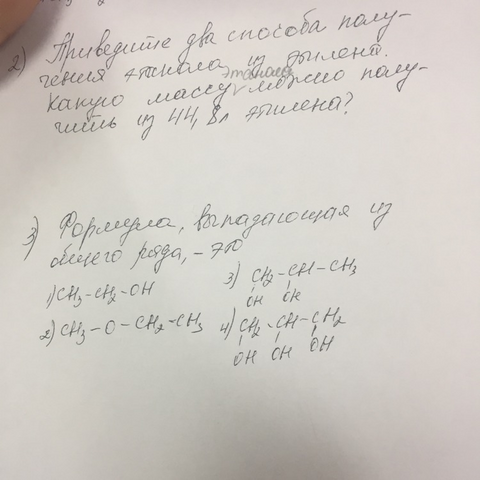 2) Приведите два способа полу-
чения этанола из этилена.
Какую массу этанола можно полу-
чить из 44,8л этилена?
3) Формула, выпадающая из
общего ряда, - это
1) CH3-CH2-OH
2) CH3-O-CH2-CH3
3) CH2-CH-CH3
OH OH
4) CH2-CH-CH2
OH OH OH